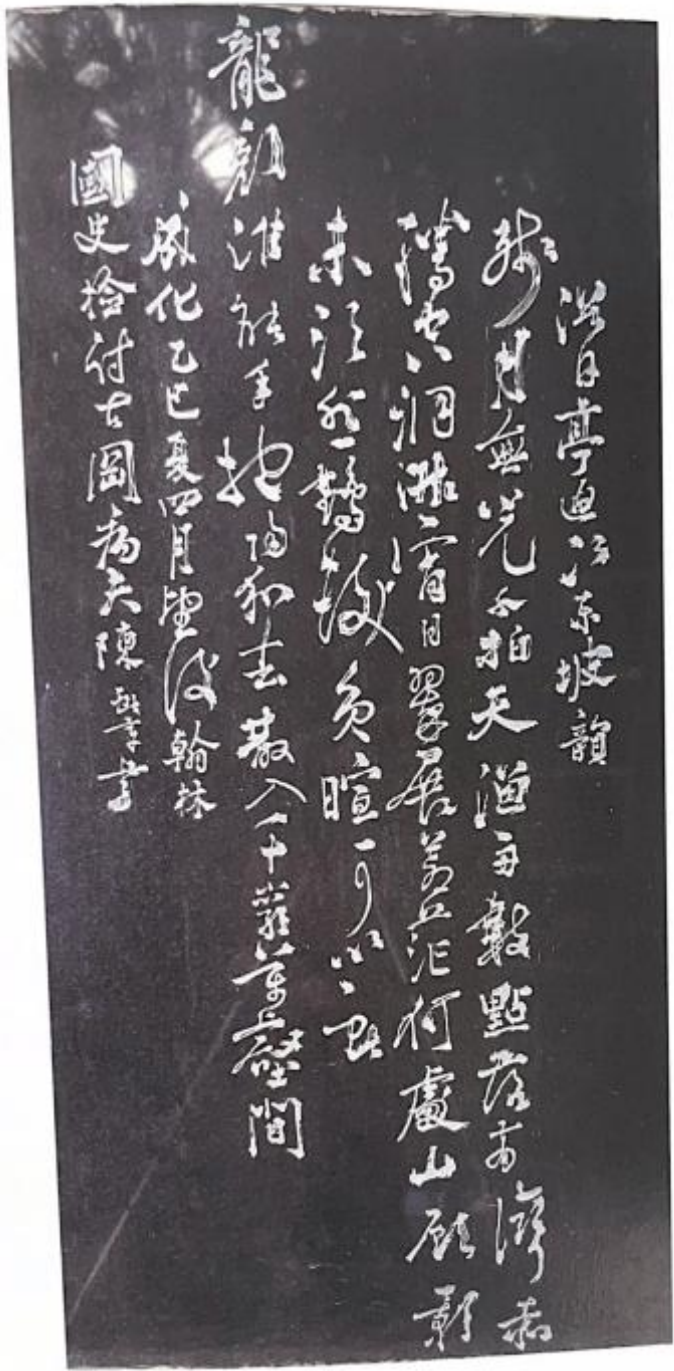 浴日亭追次東坡韻
殘月無光水拍天漁舟數點落前灣赤
騰空洞昨宵日翠展蒼茫何處山顧影
未須悲鶴髮負暄可以獻
龍顏誰能手抱陽和去散入千巖萬壑間
成化乙巳夏四月望後翰林
國史檢討古岡病夫陳獻章書